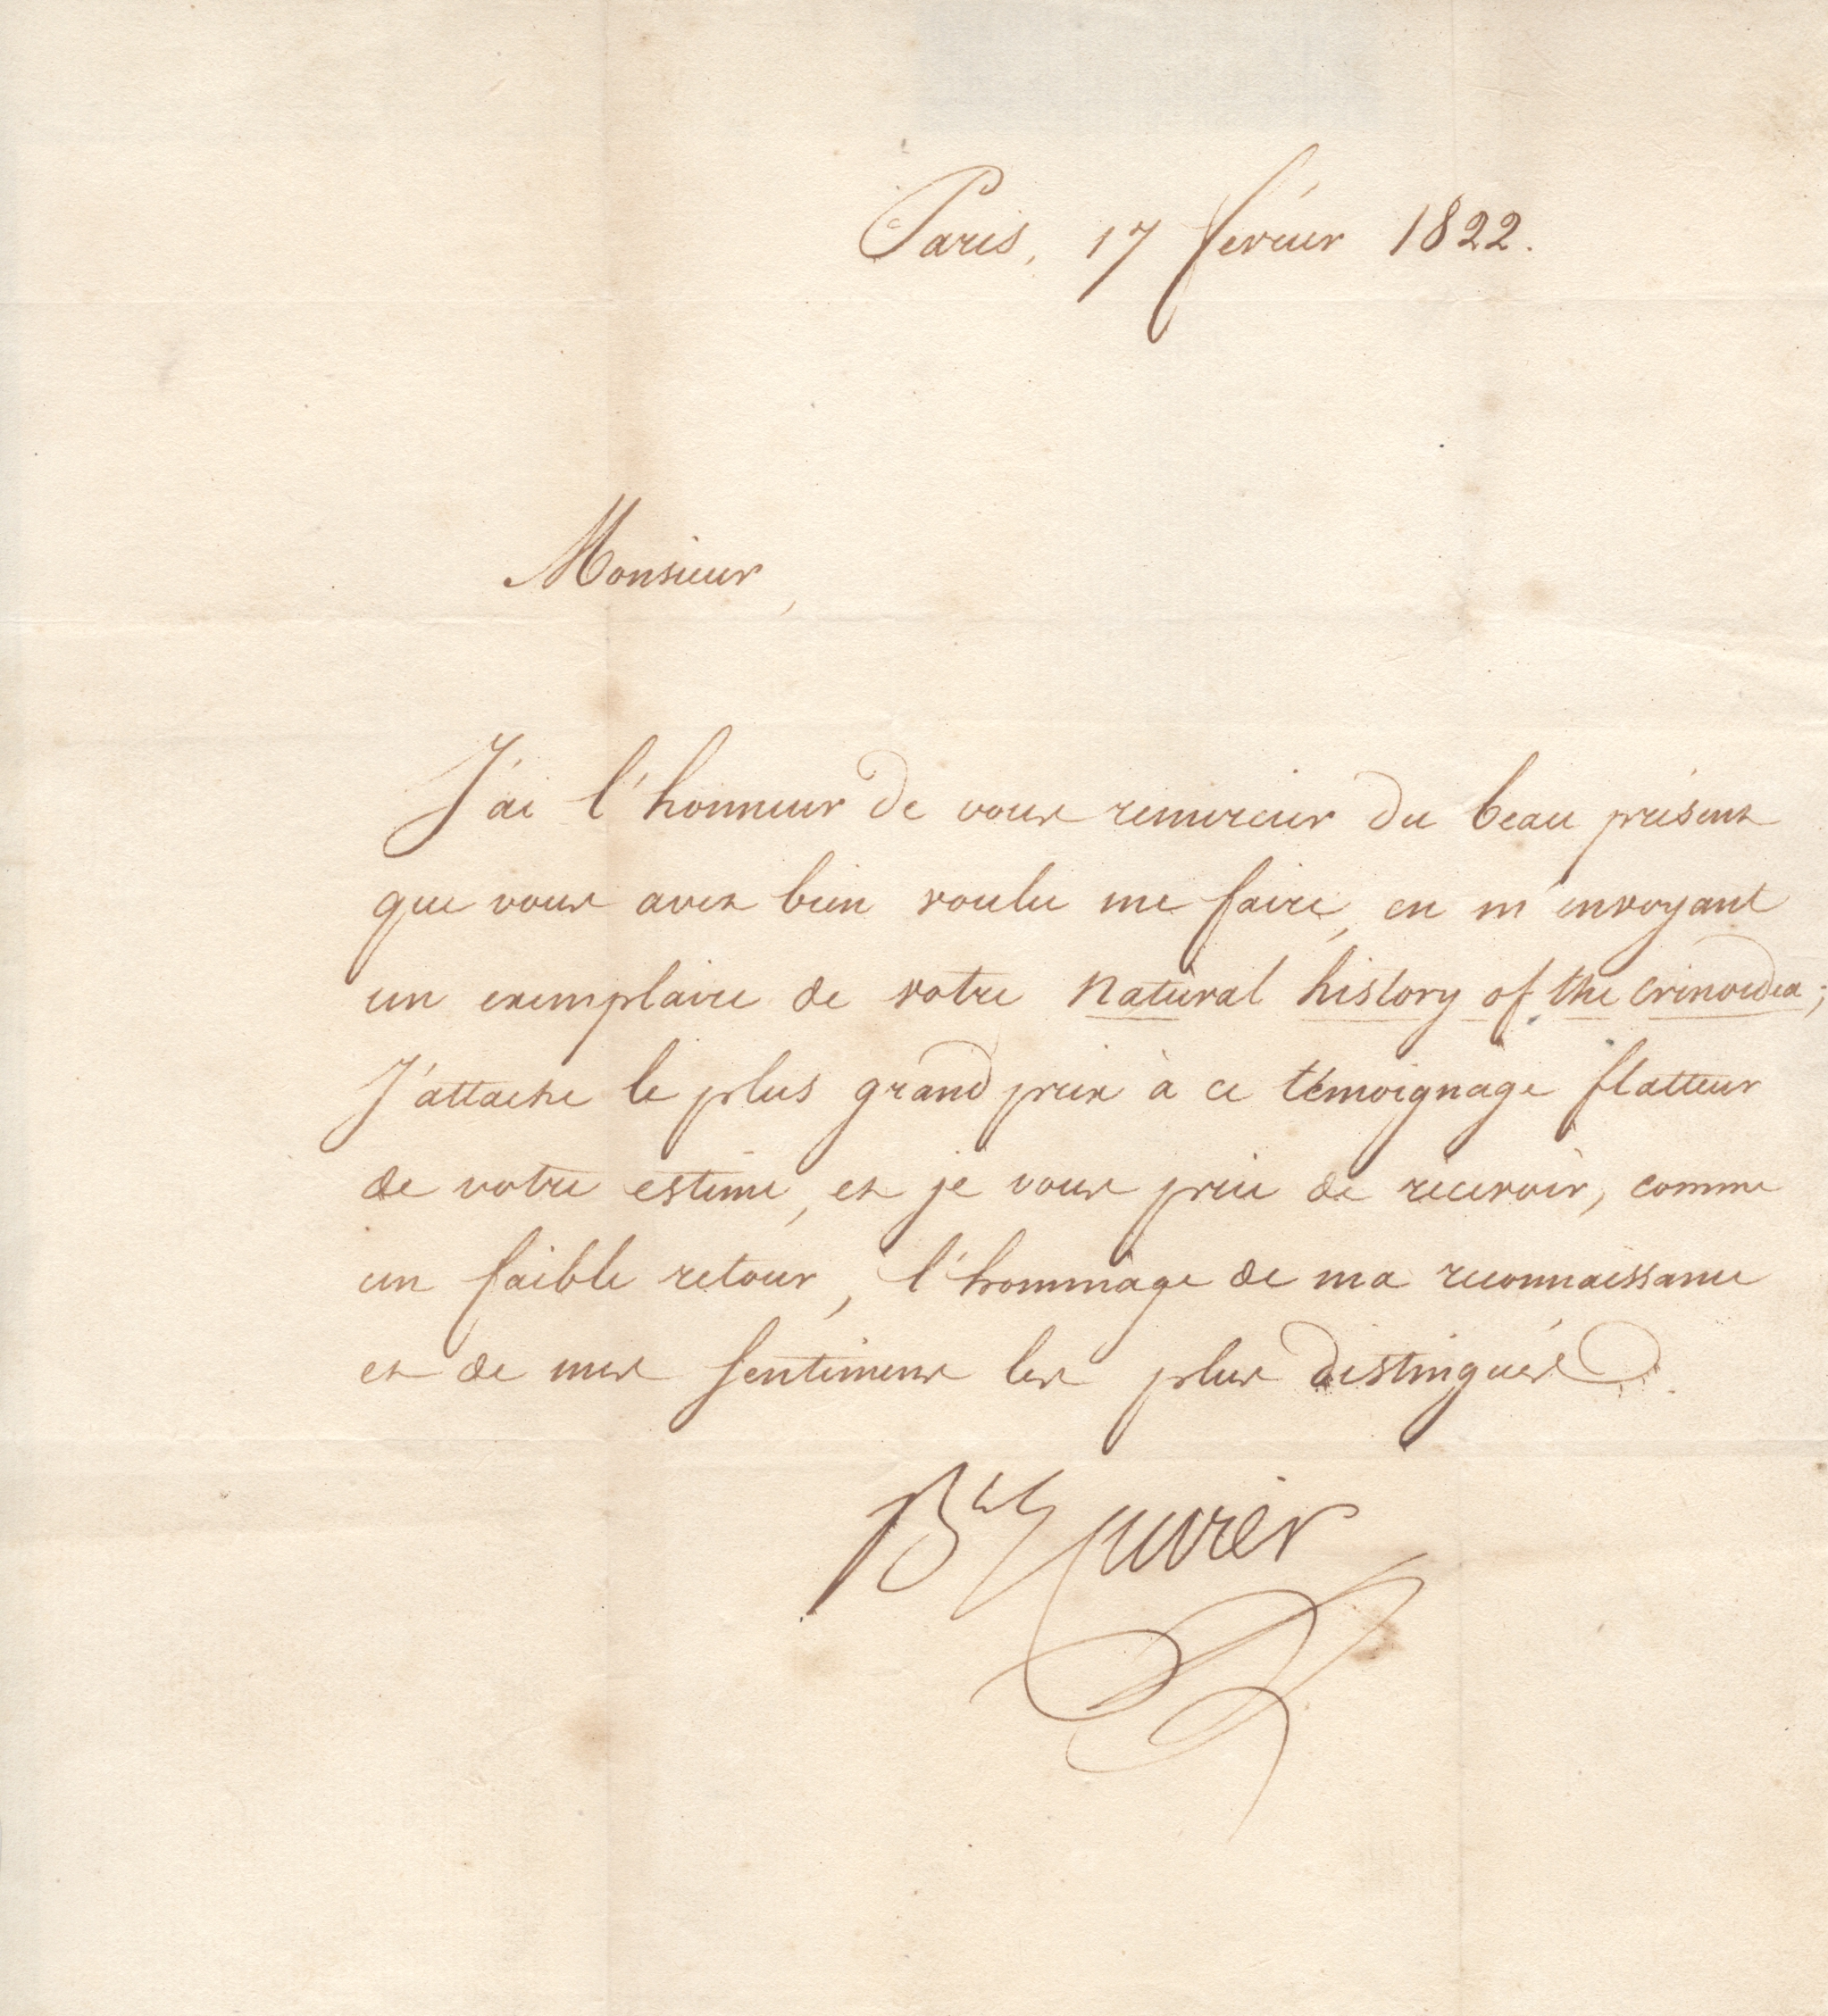 Paris, 17 février 1822.
Monsieur,
J'ai l'honneur de vous remercier du beau présent
que vous avez bien voulu me faire, en m'envoyant
un exemplaire de votre natural history of the crinoidea;
J'attache le plus grand prix à ce témoignage flatteur
de votre estime, et je vous prie de recevoir, comme
un faible retour, l'hommage de ma reconnaissance
et de mes sentimens les plus distingués.
Bn Cuvier